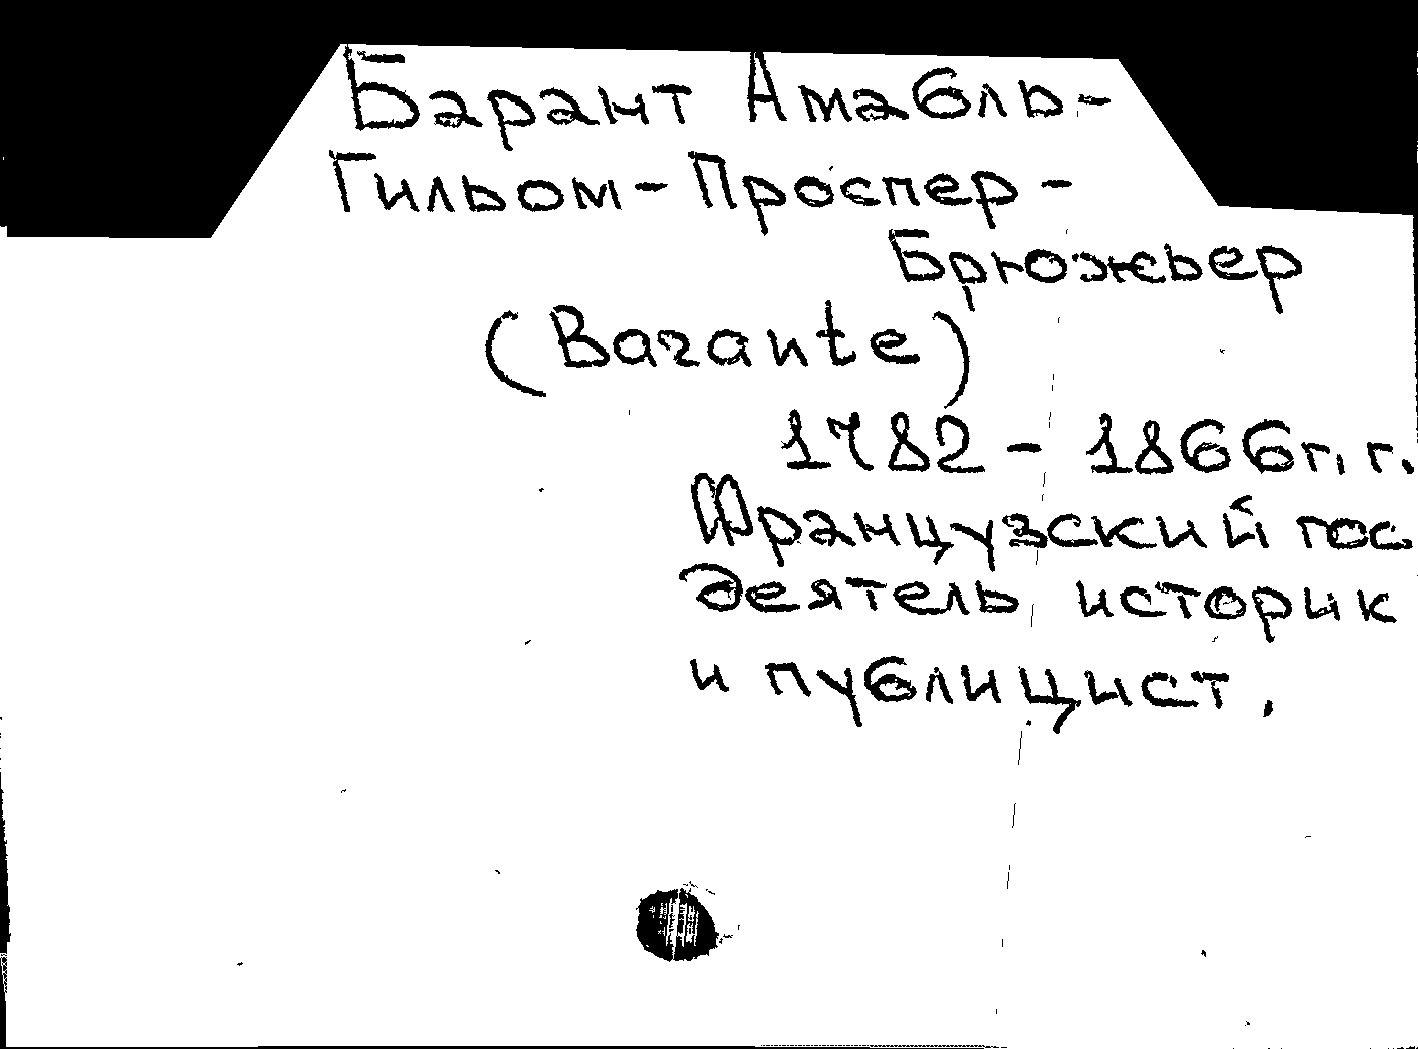 Барант Амабль-
Гильом-Проспер-
Брюжьер
(Barante)
1782 - 1866 г. г.
Французский гос.
деятель историк
и публицист.